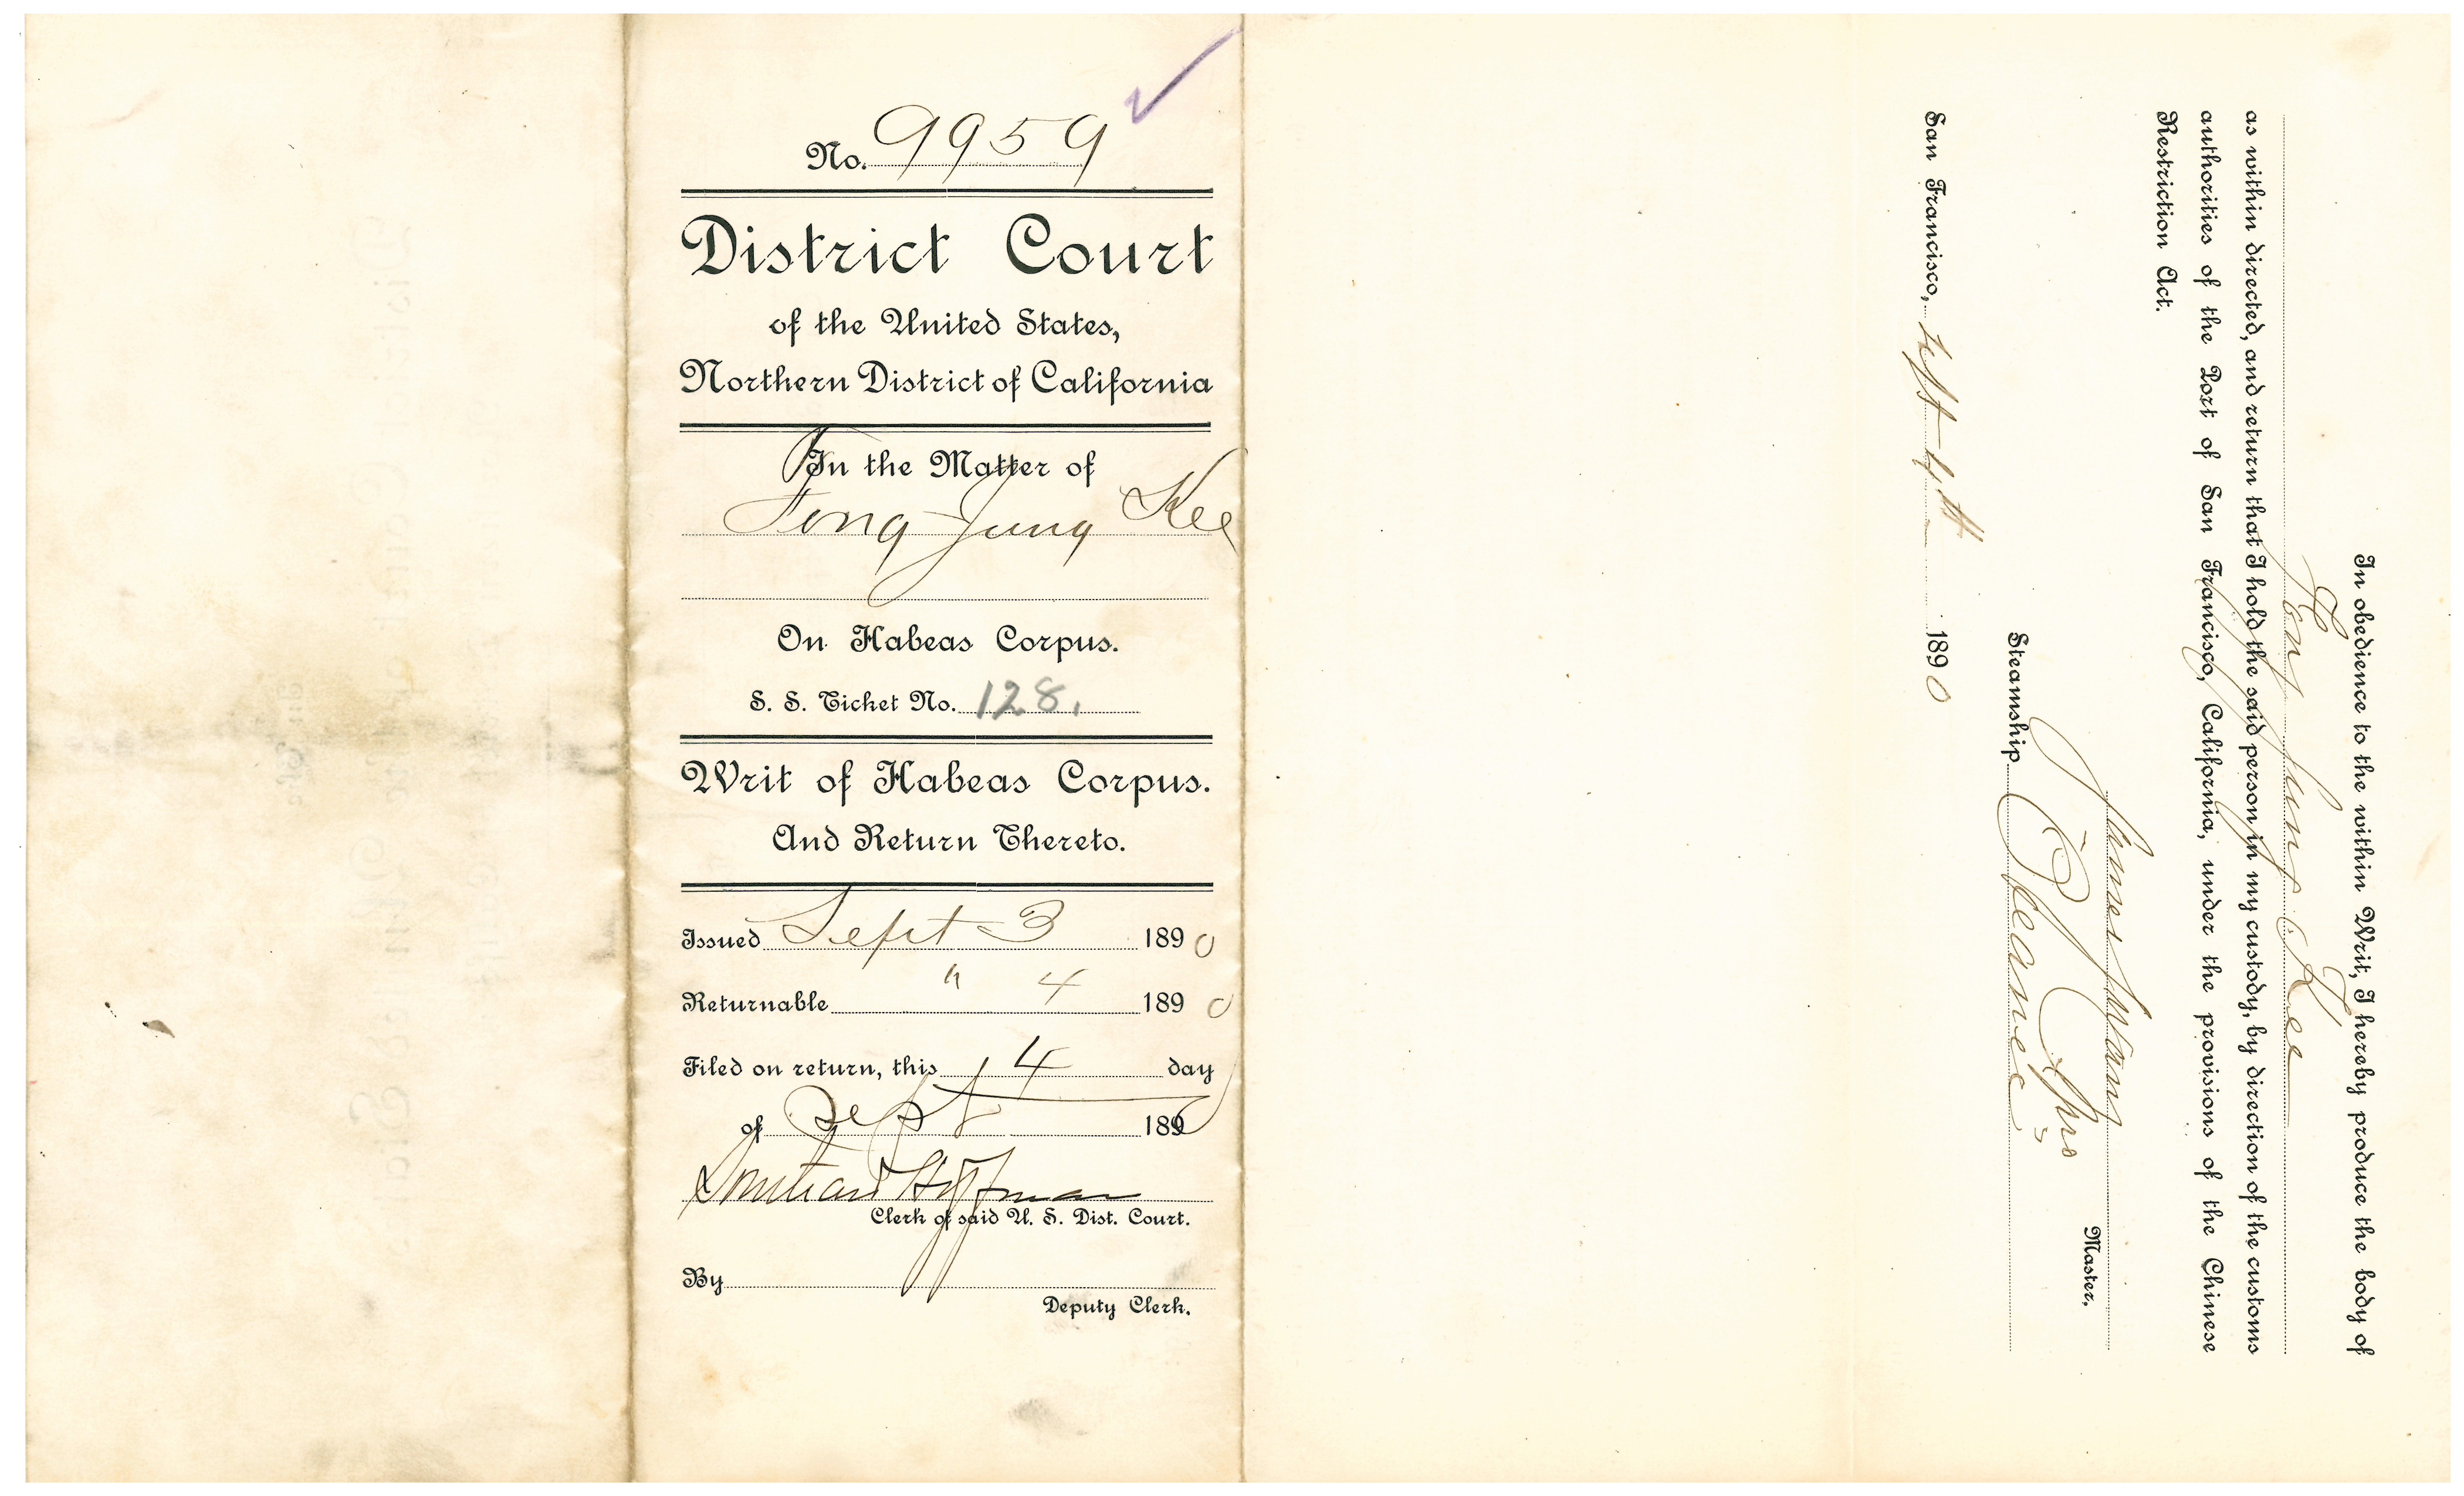 No. 9959
District Court
of the United States,
Northern District of California
In the Matter of
Fong Jung Kee
On Habeas Corpus.
S. S. Ticket No. 128.
Writ of Habeas Corpus.
And Return Thereto.
Issued Sept 3 1890
Returnable " 4 1890
Filed on return, this 4 day
of Sept 1890
Southard Hoffman
Clerk of said U. S. Dist. Court.
By
Deputy Clerk.
In obedience to the within Writ, I hereby produce the body of
Fong Jung Kee
as within directed, and return that I hold the said person in my custody, by direction of the customs
authorities of the Port of San Francisco, California, under the provisions of the Chinese
Restriction Act.
Master.
Steamship Oceanic
San Francisco, Sept 4th 1890